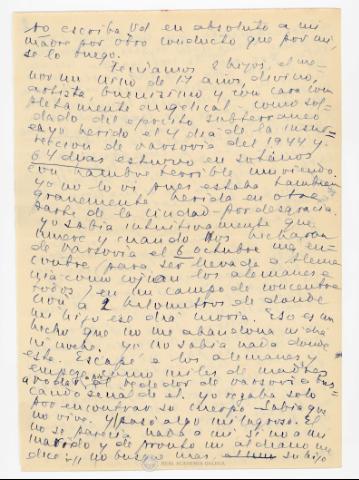 no escriba Vd en absoluto a mi
madre por otro conducto que por mí
se lo ruego.
Teníamos 2 hijos, el me-
nor un niño de 17 años, divino,
artista, buenísimo y con cara com-
pletamente angelical - como sol-
dado del ejército subterraneo
cayó herido el 4 día de la insu-
rrección de varsovia del 1944 y
64 días estuvo en sótanos
con hambre terrible muriendo.
yo no lo ví pues estaba también
gravemente herida en otra
parte de la ciudad - por desgracia
yo sabía intuitivamente que
muere y cuando nos hecharon
de varsovia el 6 octubre me en-
contré (para ser llevada a Alema
nia como hacían los alemanes a
todos) en un campo de concentra
ción a 2 kilometros de donde
mi hijo ese día moría. Eso es un
hecho que no me abandona ni día
ni noche. yo no sabía nada donde
esté. Escapé a los alemanes y
empezé como miles de madres
a rodar al rededor de varsovia bus-
cando señal de él. yo rezaba solo
por encontrar su cuerpo - sabía que
no vive. y pasó algo milagroso. El
no se parecía nada a mí si no a mi
marido y de pronto un aldeano me
dice: "no busque mas, su hijo
REAL ACADEMIA GALEGA